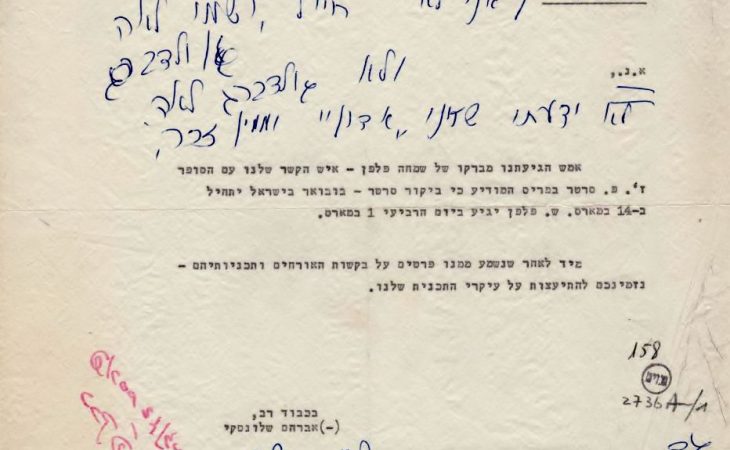 אני לא חייל, ושמי לאה
גולדברג
ולא גולדברג לאה
לא ידעתי שאינני "אדוניי" וממין זכר,
א.נ.,
אמש הגיעתנו מברקו של שמחה פלפן – איש הקשר שלנו עם הסופר
ז'. פ. סרטר בפריס המודיע כי ביקור סרטר – בובואר בישראל יתחיל
ב-14 במארס. ש. פלפן יגיע ביום הרביעי 1 במארס.
מיד לאחר שנשמע ממנו פרטים על בקשות האורחים ותכניותיהם –
נזמינכם להתיעצות על עיקרי התכנית שלנו.
158
גנזים
2736 A-/1
בכבוד רב,
(-)אברהם שלונסקי